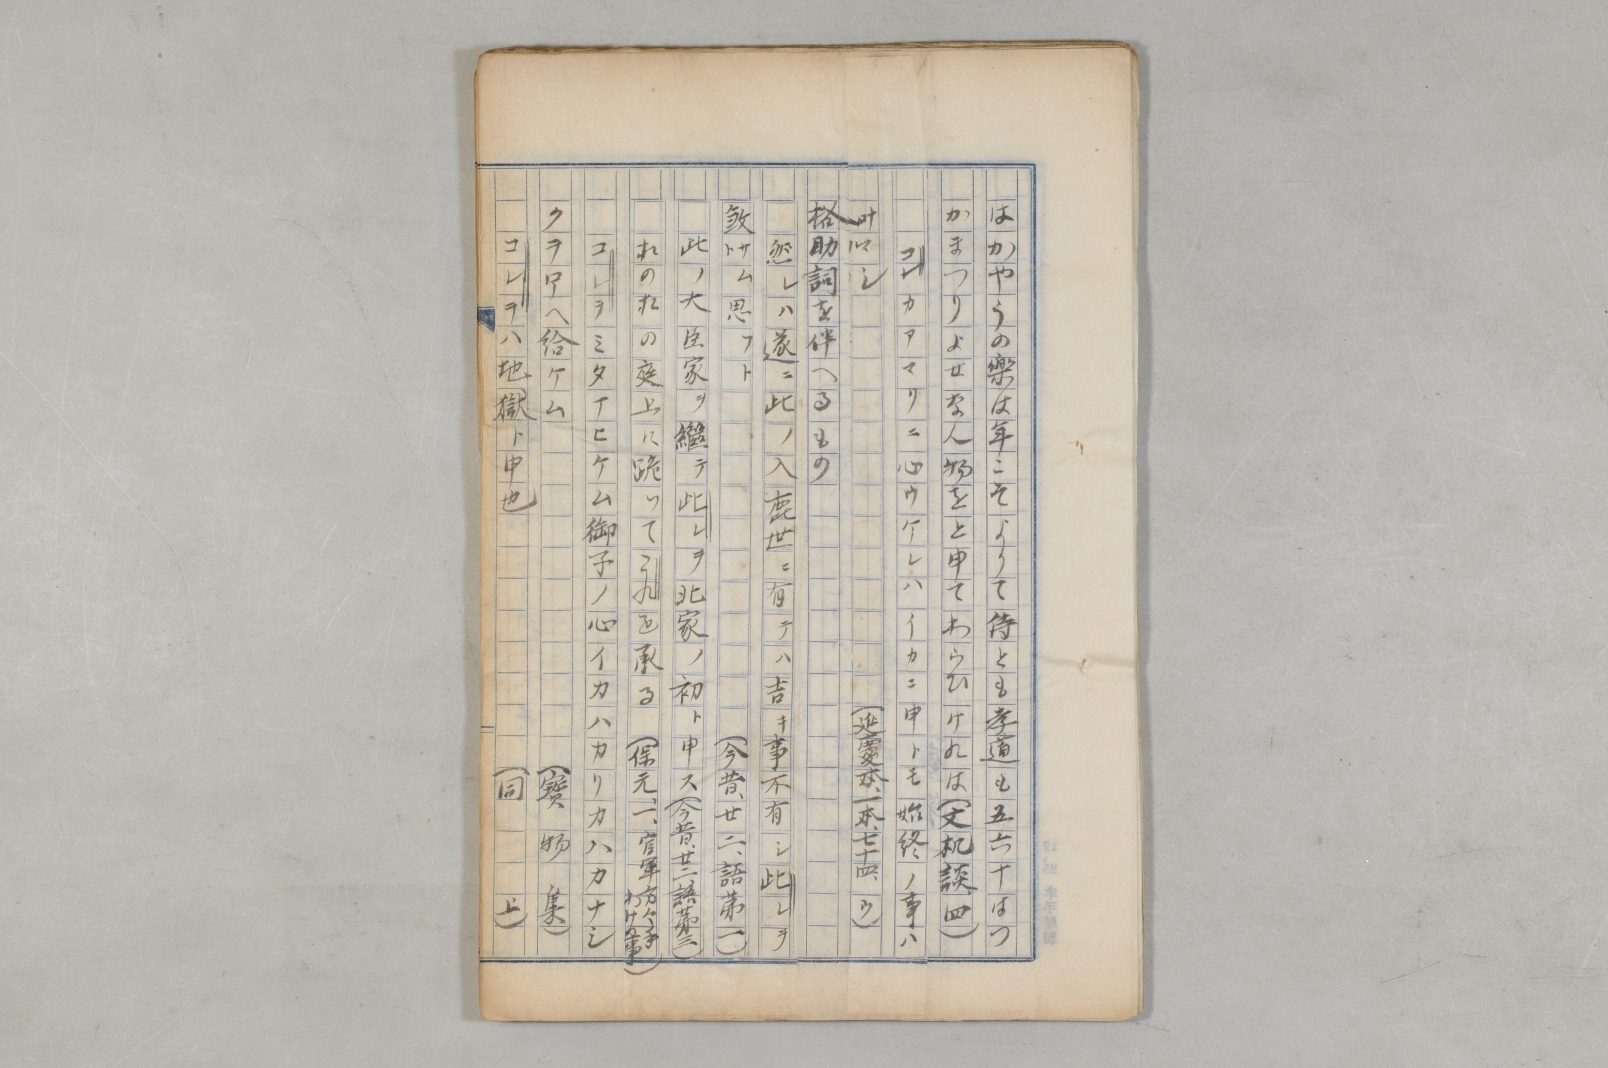 はかやうの樂は年こそよりて侍とも孝道も五六十はつ
かまつりよせなん物をと申てわらひけれは(文机談、四)
コレカアマリニ心ウケレハイカニ申トモ始終ノ事ハ
叶マシ(延慶本、一本、七十四、ウ)
格助詞を伴へるもの
然レハ遂ニ此ノ入鹿世ニ有テハ吉キ事不有シ此レヲ
敦サム思フト(今昔、廿二、語第一)
此ノ大臣家ヲ繼テ此レヲ北家ノ初ト申ス(今昔、廿二、語第三)
おのおの庭上に跪いてこれを承る(保元、一、官軍方々手わけの事)
コレヲミタイヒケム御子ノ心イカハカリカハカナシ
クヲロヘ給ケム(寶物集)
コレヲハ地獄ト申也(同上)